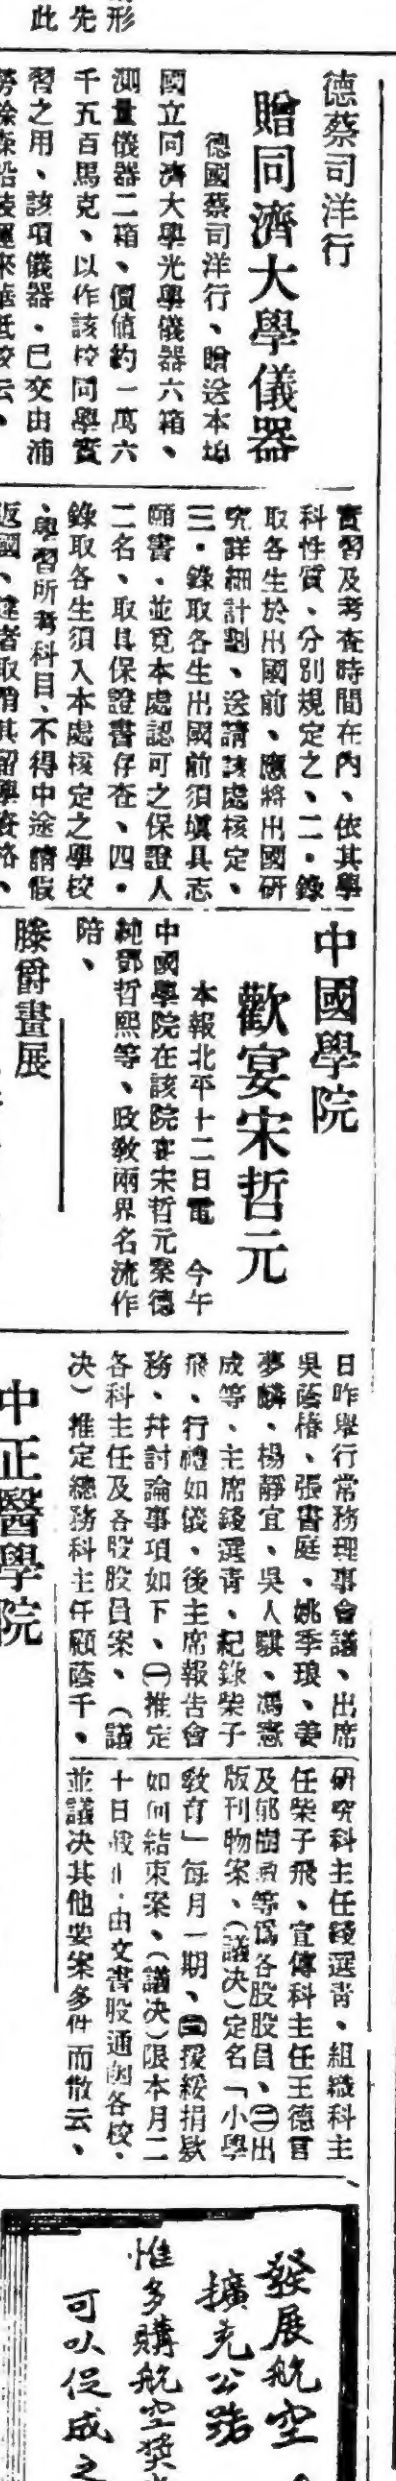 形
此先
德蔡司洋行
贈同濟大學儀器
德國蔡司洋行、贈送本埠
國立同濟大學光學儀器六箱、
測量儀器二箱、價値約一萬六
千五百馬克、以作該校同學實
習之用、該項儀器、已交由浦
運來
校云、
實習及考查時間在內、依其學
科性質、分別規定之、二・錄
取各生於出國前、應將出國研
究詳細計劃、送請該處核定、
三・錄取各生出國前須塡具志
願書、並覓本處認可之保證人
二名、取具保證書存查、四・
錄取各生須入本處核定之學校
、學習所考科目、不得中途請假
返國、違者取消其留學資格、
中國學院
歡宴宋哲元
本報北平十二日電　今午
中國學院在該院宴宋哲元秦德
純鄧哲熙等、政敎兩界名流作
陪、
滕爵畫展
日昨舉行常務理事會議、出席
吳蔭椿、張書庭、姚季琅、姜
夢麟、楊靜宜、吳人騏、馮憲
成等、主席錢選靑、紀錄柴子
飛、行禮如儀、後主席報告會
務、幷討論事項如下、㊀推定
各科主任及各股股員案、（議
决）推定總務科主任顧蔭千、
研究科主任錢選靑、組織科主
任柴子飛、宣傳科主任王德
及郭樹 等爲各股股員、㊁出
版刊物案、（議决）定名「小學
敎育」每月一期、㊂援綏捐欵
如何結束案、（議决）限本月二
十日截止、由文書股通函各校、
並議决其他要案多件而散云、
中正醫學院
發展航空
擴充公路
惟多購航空獎
可以促成之